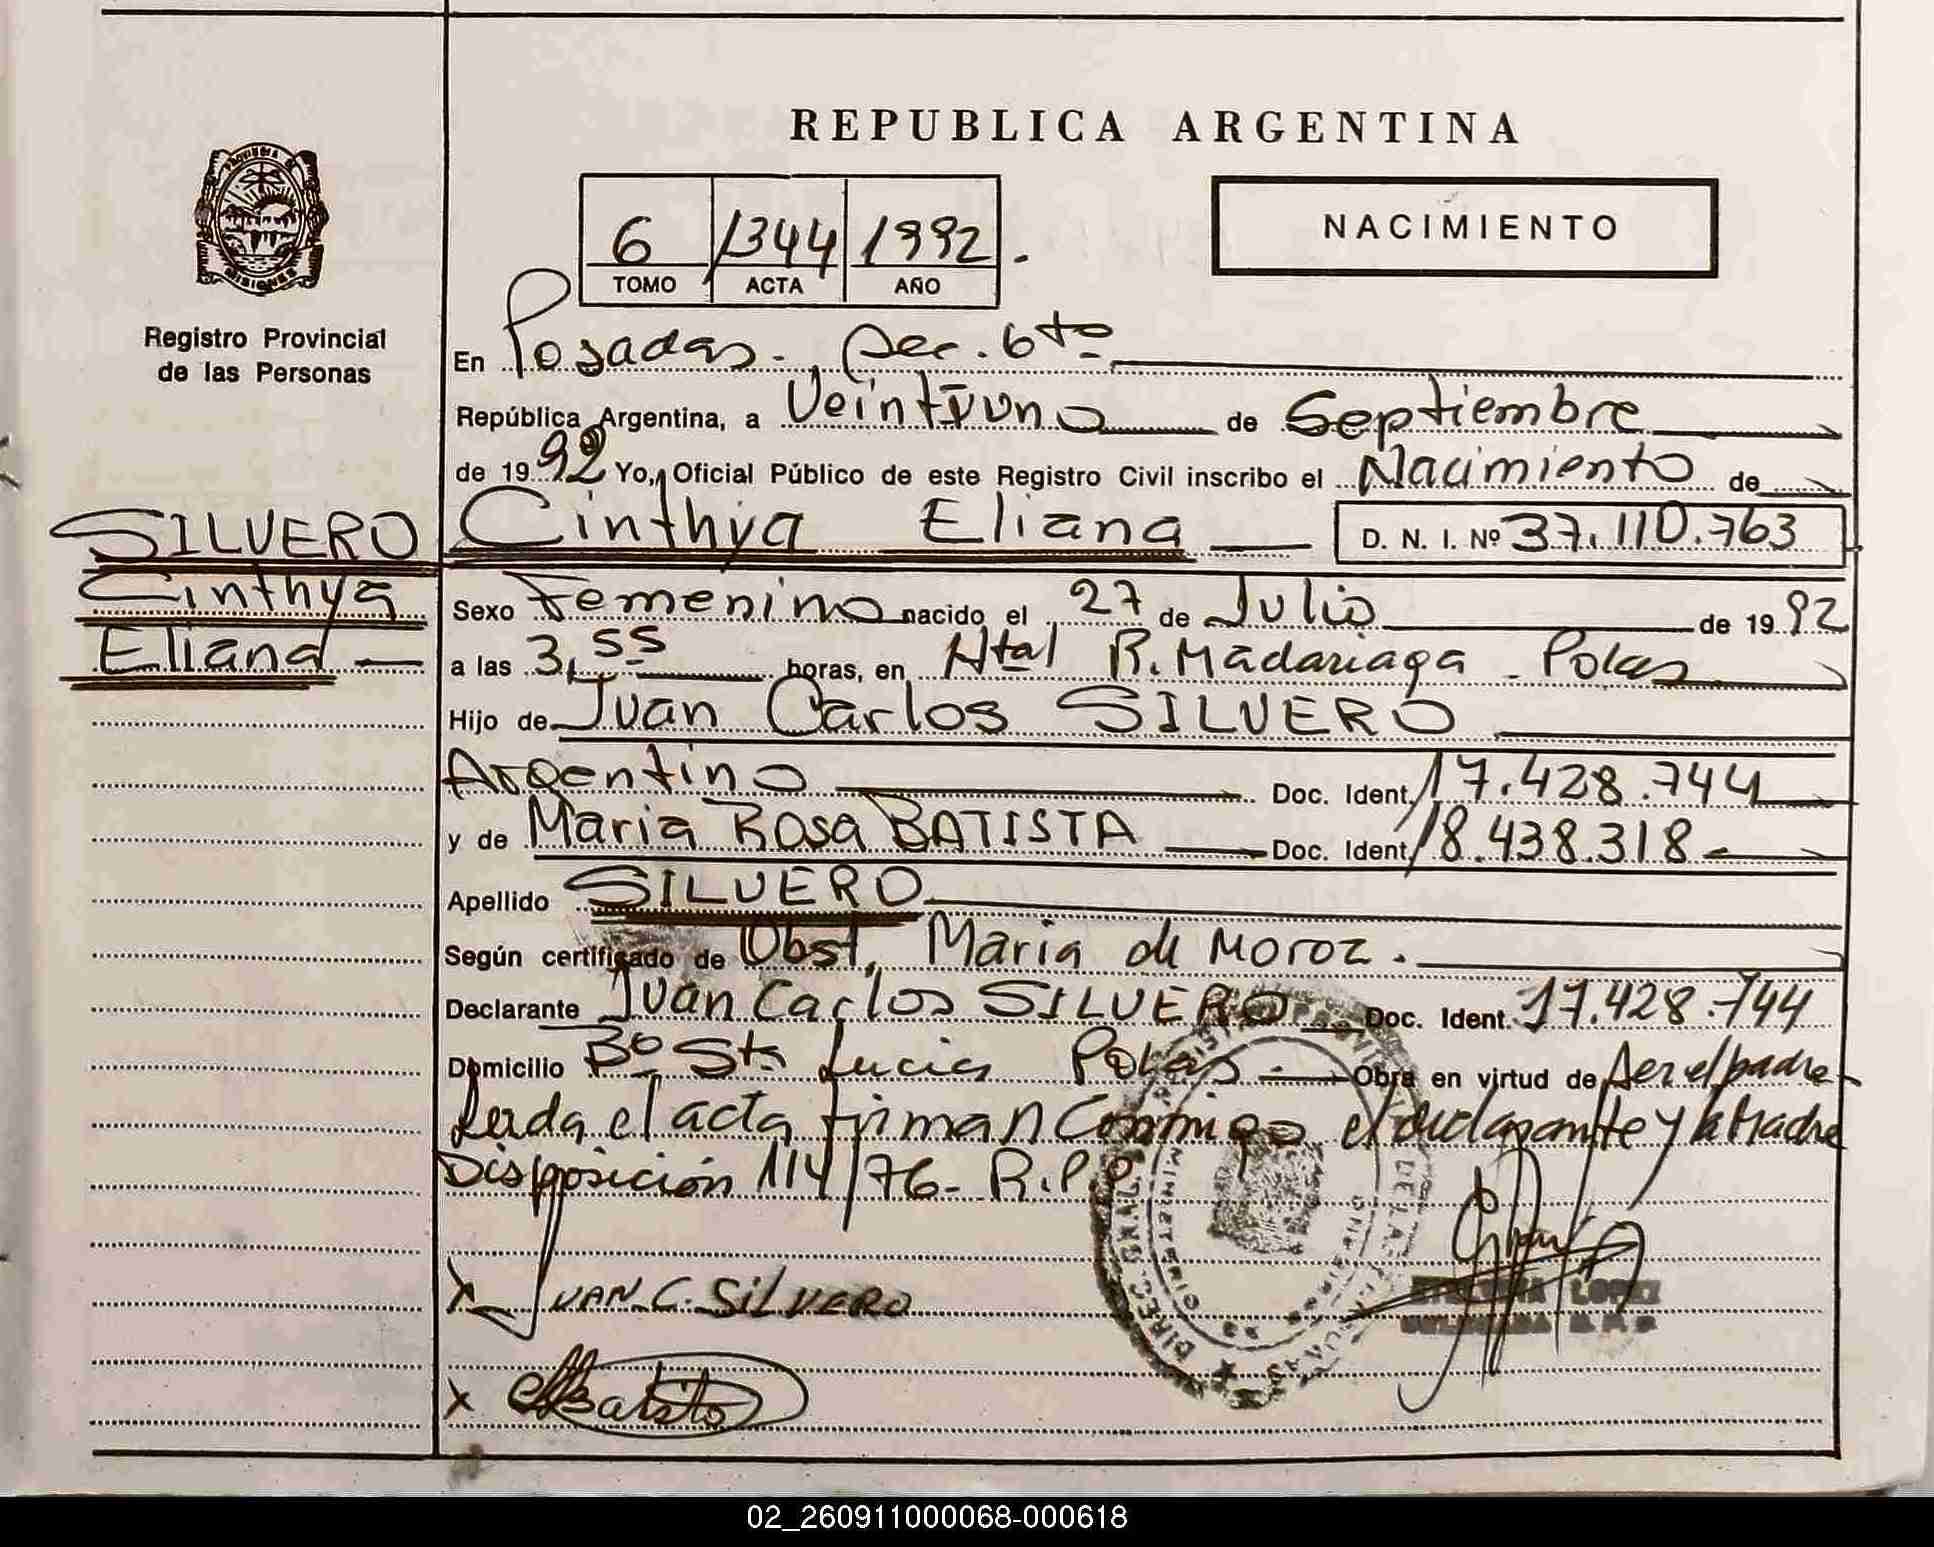 REPUBLICA ARGENTINA
NACIMIENTO
6 1344 1992.
TOMO ACTA AÑO
MISIONES
Registro Provincial
de las Personas
En Posadas - Sec. 6to
República Argentina, a Veintiuno de Septiembre
de 1992 Yo, Oficial Público de este Registro Civil inscribo el Nacimiento de
SILVERO
Cinthya
Eliana
Cinthya Eliana D. N. I. Nº 37.110.763
Sexo Femenino nacido el 27 de Julio de 1992
a las 3,55 horas, en Htal R. Madariaga - Pdas
Hijo de Juan Carlos SILVERO
Argentino Doc. Ident. 17.428.744
y de Maria Rosa BATISTA Doc. Ident. 18.438.318
Apellido SILVERO
Según certificado de Obst. Maria de Moroz.
Declarante Juan Carlos SILVERO Doc. Ident. 17.428.744
Domicilio Bº Sta Lucia Pdas - Obra en virtud de Ser el padre
Leida el acta firman Conmigo el declarante y la Madre
Disposición 114/76- R.P.P.
X JUAN C. SILVERO
X MBatista
LOPEZ
02_260911000068-000618